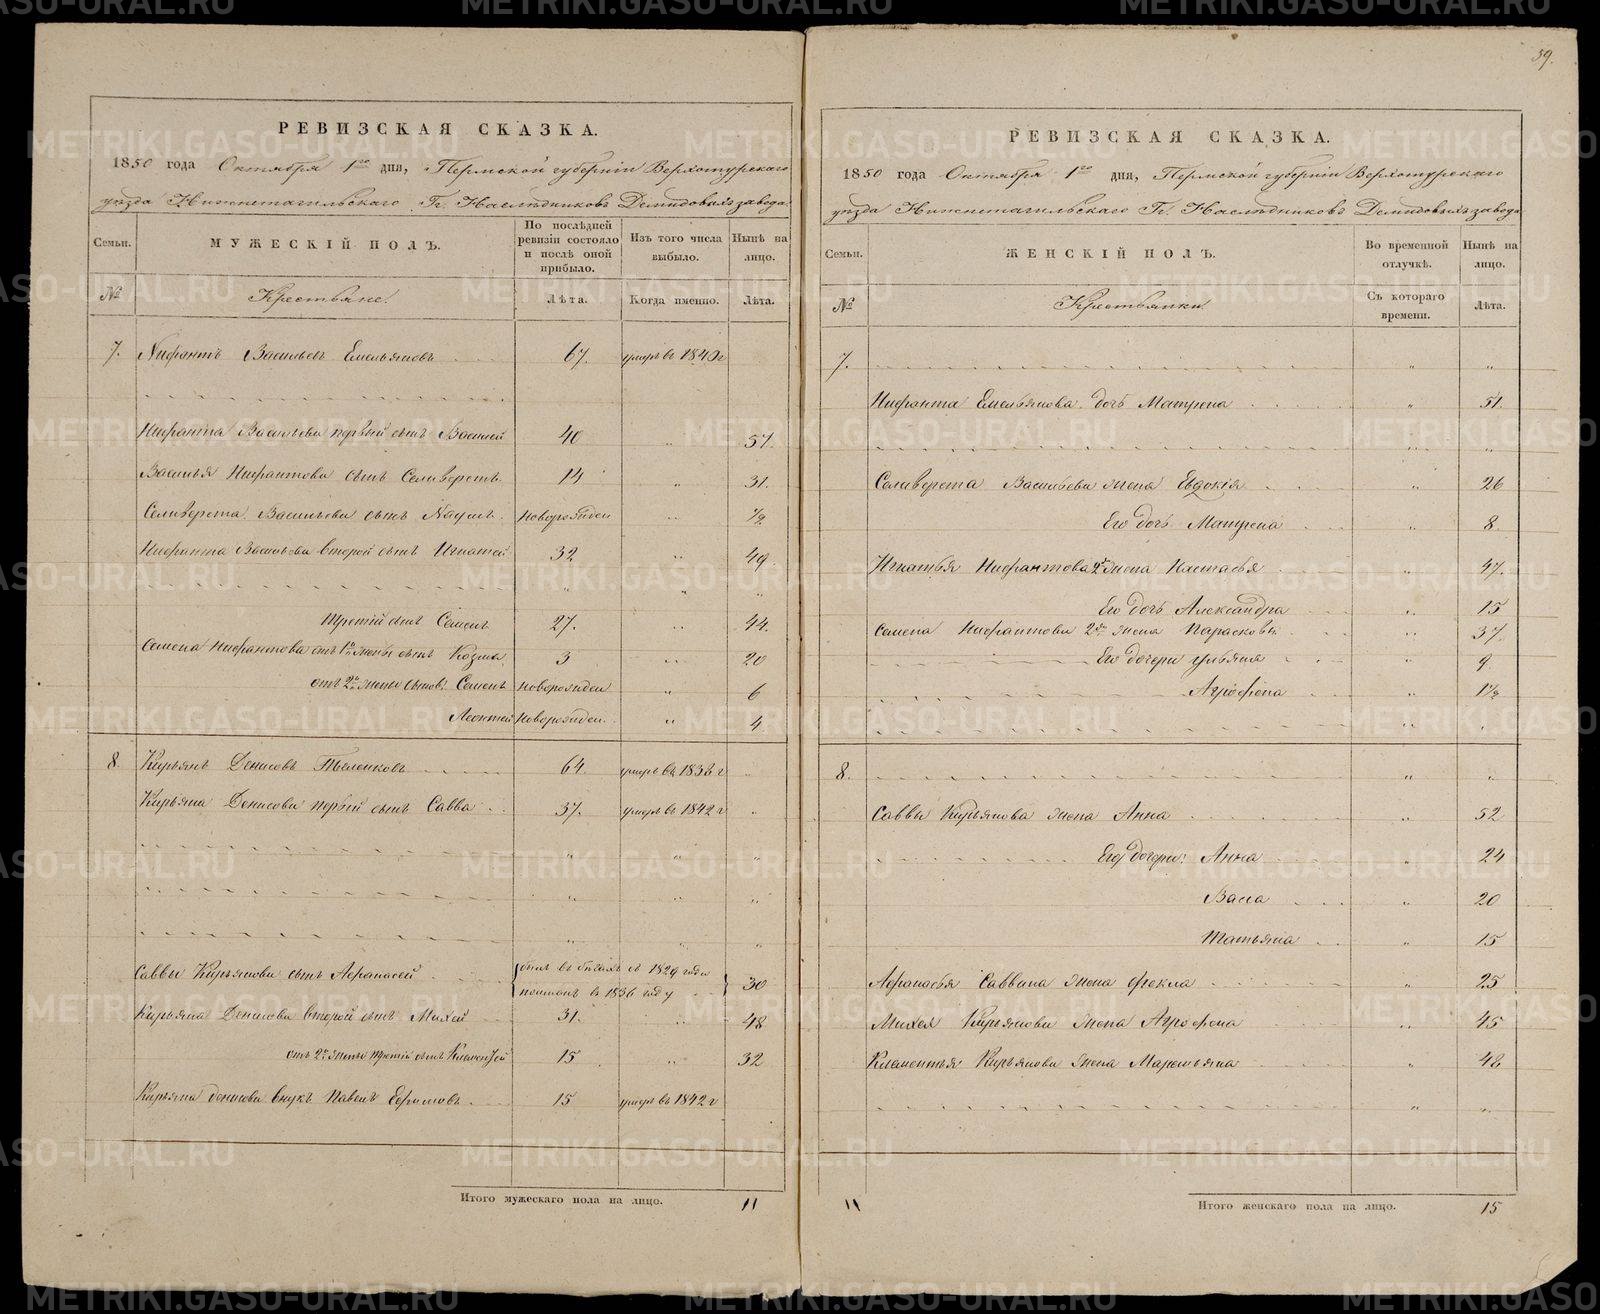 РЕВИЗСКАЯ СКАЗКА.
1850 года Октября 1го дня, Пермской губернии Верхотурскаго
уезда Нижнетагильскаго Гг. Наследниковъ Демидовыхъ завода
Семьи. МУЖЕСКІЙ ПОЛЪ. По послѣдней ревизіи состояло и послѣ оной прибыло. Изъ того числа выбыло. Нынѣ на лицо.
№ Крестьяне. Лѣта. Когда именно. Лѣта.
7. Нифантъ Васильевъ Емельяновъ 67. умеръ въ 1840 г
Нифанта Васильева первый сынъ Василей 40 57.
Василья Нифантова сынъ Селиверстъ 14 31.
Селиверста Васильева сынъ Наумъ новорожден 1/2
Нифанта Васильева второй сынъ Игнатей 32 49.
третій сынъ Семенъ 27. 44.
Семена Нифантова отъ 1й жены сынъ Козма 3 20
отъ 2й жены сынов: Семенъ новорожден 6
Леонтей новорожден 4
8. Кирьянъ Денисовъ 64 умеръ въ 1836 г
Кирьяна Денисова первый сынъ Савва 37. умеръ въ 1842 г
Саввы Кирьянова сынъ Афанасей былъ въ бѣгахъ съ 1829 года 30
пойманъ въ 1836 году
Кирьяна Денисова второй сынъ Михей 31. 48
отъ 2й жены третій сынъ Клементей 15 32
Кирьяна Денисова внукъ Павелъ Ефимовъ 15 умеръ въ 1842 г
Итого мужескаго пола на лицо. 11
59.
РЕВИЗСКАЯ СКАЗКА.
1850 года Октября 1го дня, Пермской губерніи Верхотурскаго
уезда Нижнетагильскаго Гг. Наследниковъ Демидовыхъ завода
Семьи. ЖЕНСКІЙ ПОЛЪ. Во временной отлучкѣ. Нынѣ на лицо.
№ Крестьянки. Съ котораго времени. Лѣта.
7.
Нифанта Емельянова дочь Матрена 51.
Селиверста Васильева жена Евдокія 26
Его дочь Матрена 8.
Игнатья Нифантова 2я жена Настасья 47.
Его дочь Александра 15
Семена Нифантова 2я жена Парасковья 37.
Его дочери Ульяния 9
Агрофена 1 1/2
8.
Саввы Кирьянова жена Анна 52
Его дочери: Анна 24
Васса 20
Татьяна 15
Афанасья Саввина жена Фекла 25
Михея Кирьянова жена Агрофена 45
Клементья Кирьянова жена Маремьяна 48
11
Итого женскаго пола на лицо. 15
METRIKI.GASO-URAL.RU